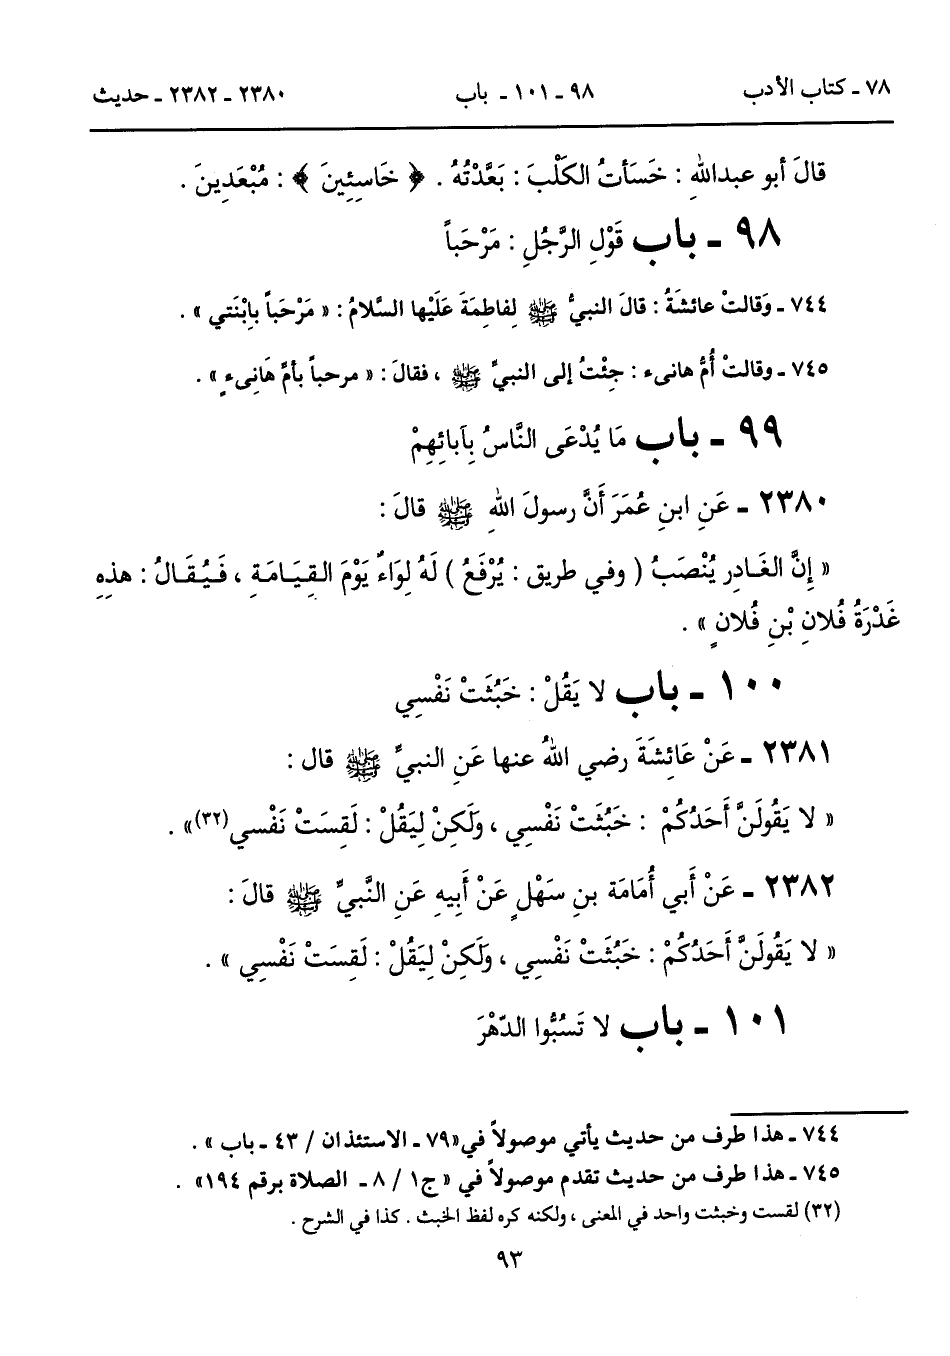 ٧٨ ـ كتاب الأدب ٩٨ ـ ١٠١ ـ باب ٢٣٨٠ ـ ٢٣٨٢ ـ حديث
قالَ أبو عبداللهِ : خَسَأتُ الكَلْبَ : بَعَّدْتُهُ . ﴿ خَاسِئِينَ ﴾ : مُبْعَدِينَ .
٩٨ ـ باب قَوْلِ الرَّجُلِ : مَرْحَباً
٧٤٤ ـ وَقالتْ عائشَةُ : قالَ النبيُّ ﷺ لِفاطِمَةَ عَلَيْها السَّلامُ : « مَرْحَباً بِابْنَتي » .
٧٤٥ ـ وقالتْ أُمُّ هانىء : جِئْتُ إلى النبيِّ ﷺ ، فقالَ : « مرحباً بأمِّ هَانِىءٍ » .
٩٩ ـ باب مَا يُدْعَى النَّاسُ بِآبائِهِمْ
٢٣٨٠ ـ عَنِ ابنِ عُمَرَ أَنَّ رسولَ اللهِ ﷺ قالَ :
« إِنَّ الغَادِر يُنْصَبُ ( وفي طريق : يُرْفَعُ ) لَهُ لِوَاءٌ يَوْمَ القِيَامَةِ ، فَيُقَالُ : هذهِ
غَدْرَةُ فُلانِ بْنِ فُلانٍ » .
١٠٠ ـ باب لا يَقُلْ : خَبُثَتْ نَفْسِي
٢٣٨١ ـ عَنْ عَائِشَةَ رضي اللهُ عنها عَنِ النبيِّ ﷺ قال :
« لا يَقُولَنَّ أَحَدُكُمْ : خَبُثَتْ نَفْسِي ، ولَكِنْ لِيَقُلْ : لَقِسَتْ نَفْسي(٣٢)» .
٢٣٨٢ ـ عَنْ أَبي أُمَامَة بنِ سَهْلٍ عَنْ أَبِيهِ عَنِ النَّبيِّ ﷺ قالَ :
« لا يَقُولَنَّ أَحَدُكُمْ : خَبُثَتْ نَفْسِي ، ولَكِنْ لِيَقُلْ : لَقِسَتْ نَفْسِي » .
١٠١ ـ باب لا تَسُبُّوا الدَّهْرَ
٧٤٤ ـ هذا طرف من حديث يأتي موصولاً في«٧٩ ـ الاستئذان / ٤٣ ـ باب » .
٧٤٥ ـ هذا طرف من حديث تقدم موصولاً في « ج١ / ٨ ـ الصلاة برقم ١٩٤» .
(٣٢) لقست وخبثت واحد في المعنى ، ولكنه كره لفظ الخبث . كذا في الشرح .
٩٣